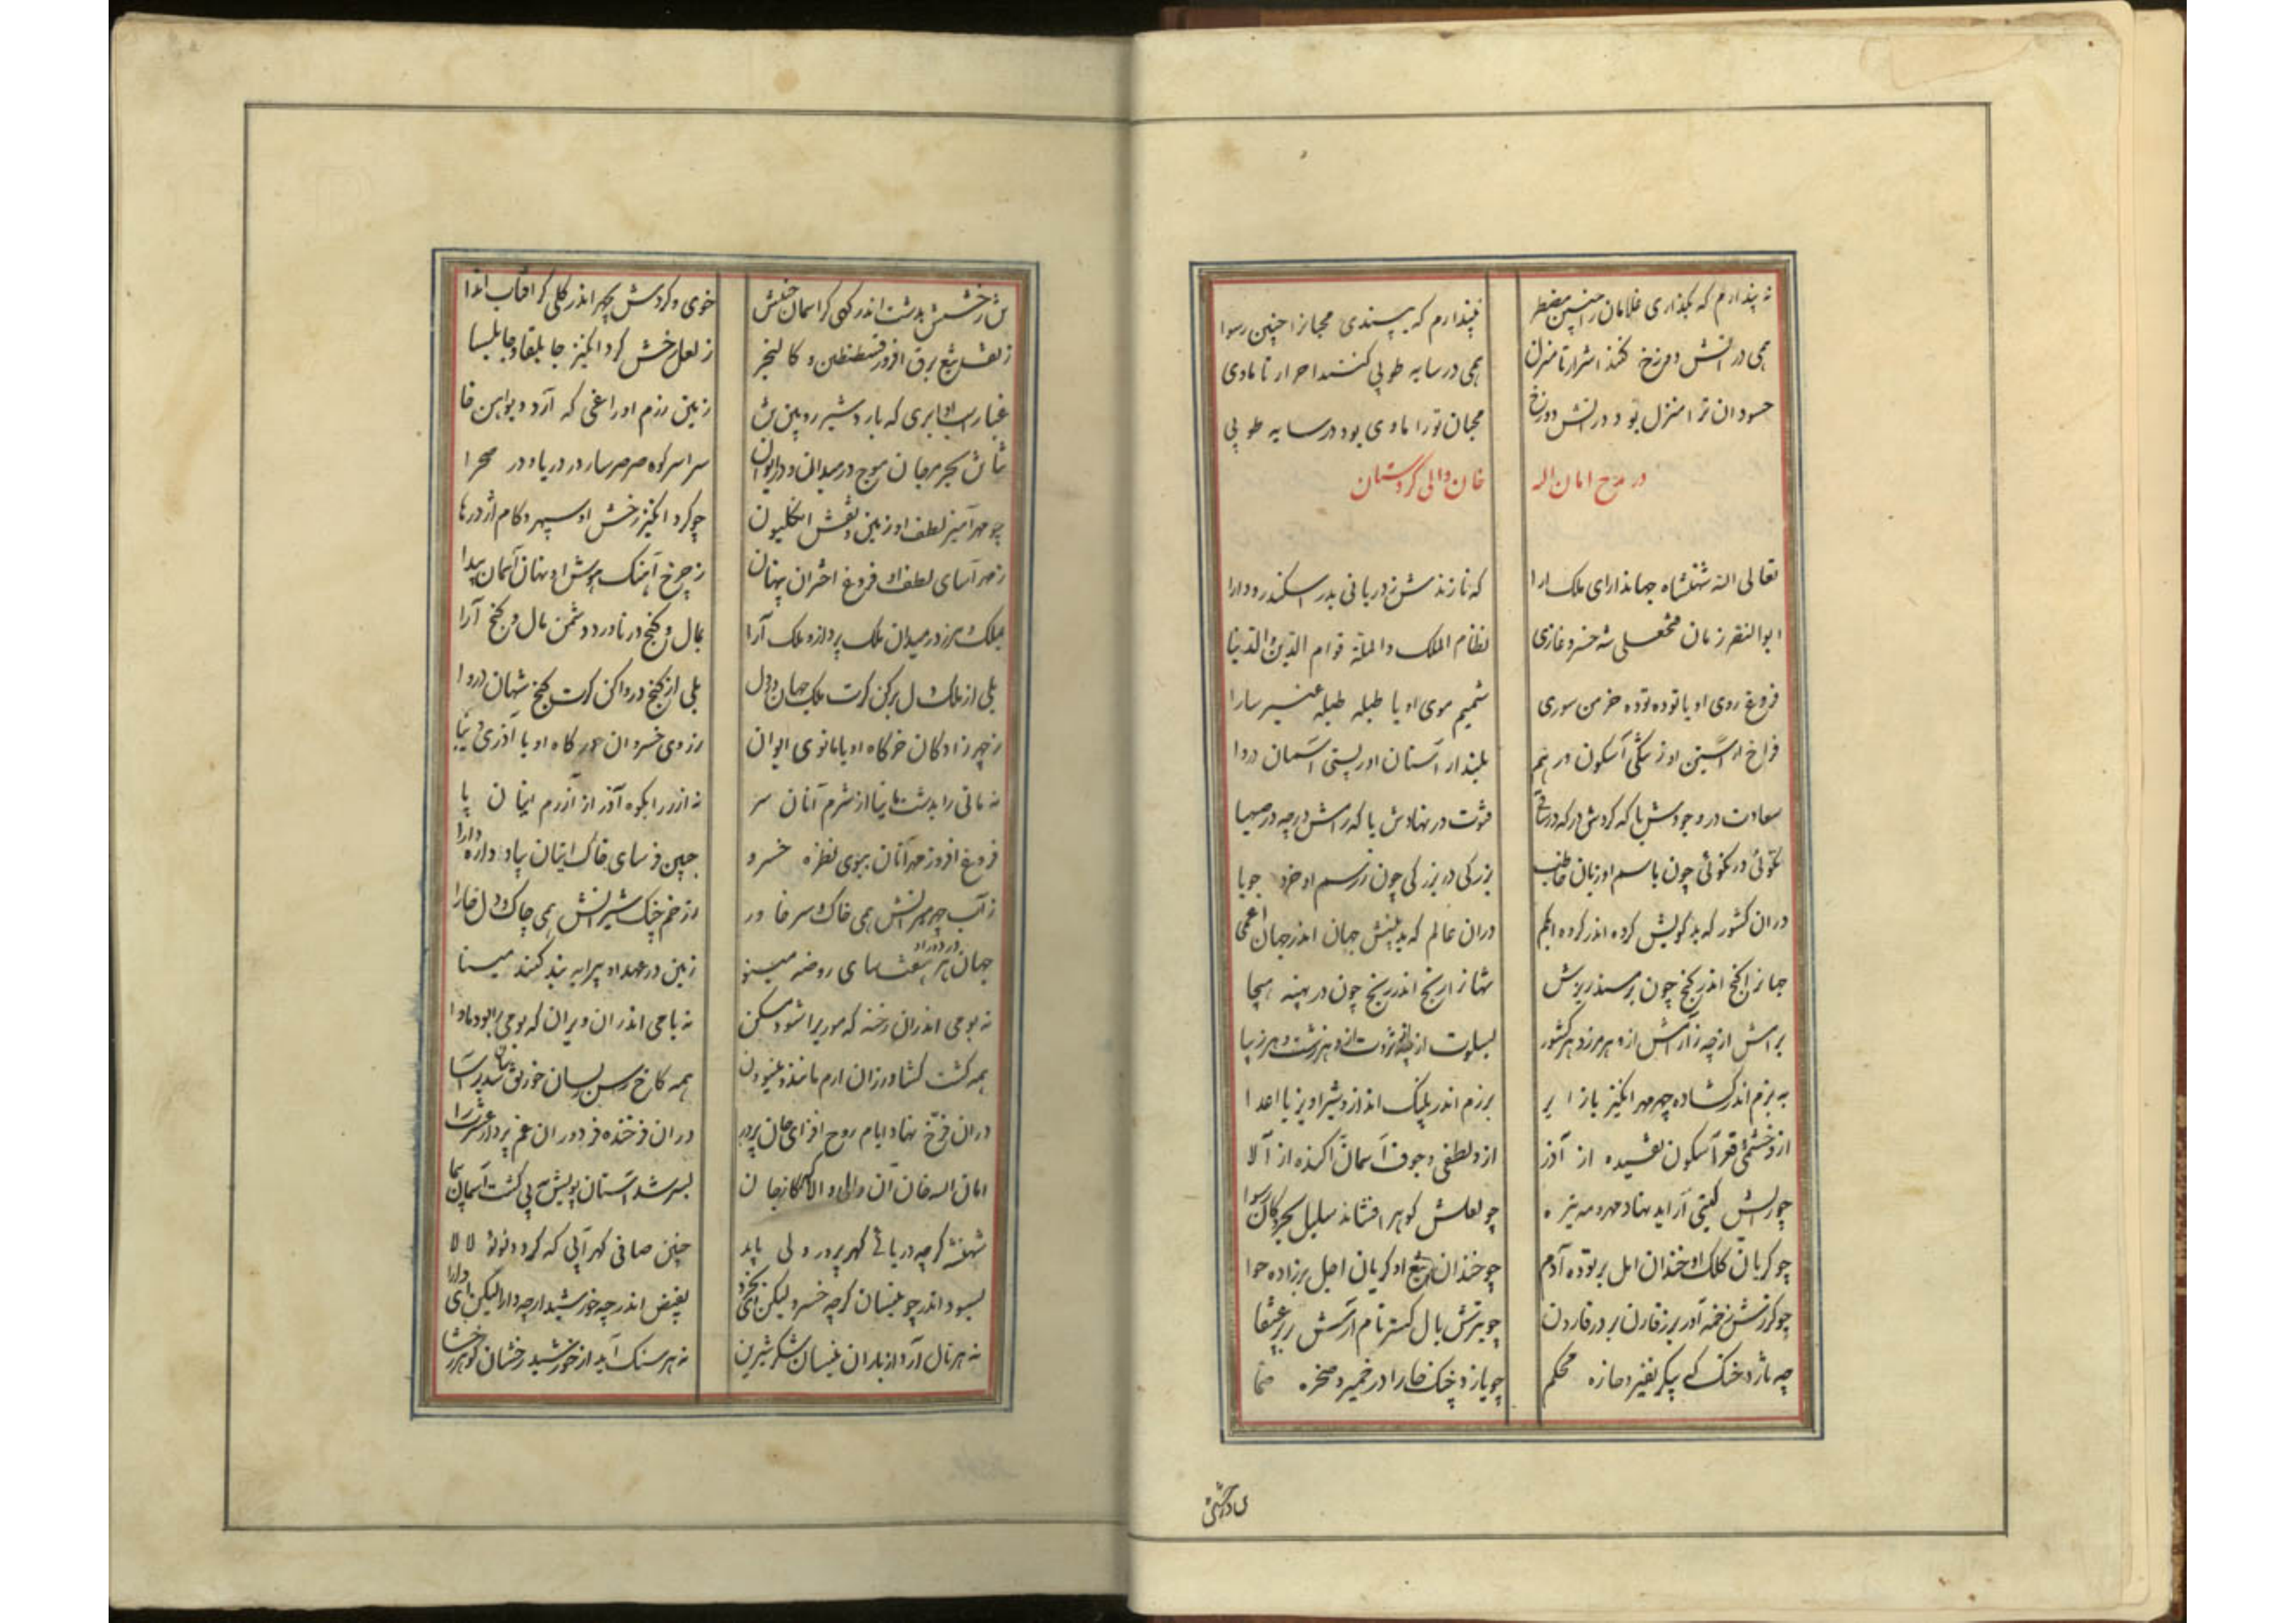 نه پندارم که بگذاری غلامان را چنین مضطر نپندارم که بپسندی محبانرا چنین رسوا
همی در آتش دوزخ کنند اشرار تا منزل همی در سایه طوبی کنند احرار تا ماوی
حسودان ترا منزل بود در آتش دوزخ محبان تورا ماوی بود در سایه طوبی
در مدح امان اله خان والی کردستان
تعالی الله شهنشاه جهاندارای ملک ارا که نازندش ز دربانی بدر اسکندر و دارا
ابوالنصر زمان فتحعلی شه خسرو غازی نظام الملک والملة قوام الدین والدنیا
فروغ روی او یا توده توده خرمن سوری شمیم موی او یا طبله طبله عنبر سارا
فراخ از آستین او ز تنگی آسکون در هم بلند از آستان او ز پستی آسمان دروا
سعادت در وجودش یا که گردش در که در فتوت در نهادش یا که رامش در چه در صهبا
نکوئی در نکوئی چون باسم او زبان بزرگی در بزرگی چون ز رسم او خرد جویا
دران کشور که بد گویش گروه اندر گروه ابکم دران عالم که بد بینش جهان اندر جهان اعمی
جهانرا گنج اندر گنج چون بر مسند ریزش شهانرا رنج اندر رنج چون در پهنه هیجا
برامش از چه ز آرامش ازو هر مرز و هر کشور
به بزم اندر گشاده چهر مهر انگیز یا زایر برزم اندر پلنگ انداز و شیر اویز یا اعدا
ازو خشمی و قعر آسکون تفسیده از آذر ازو لطفی و جوف آسمان آکنده از آلا
چو رایش گیتی آراید نهاد مهر و مه تیره چو لعلش گوهر افشاند سلیل بحر و کان رسوا
چو گریان کلک او خندان امل بر توده آدم چو خندان تیغ او گریان اجل بر زاده حوا
چو گرزش زخمه آور برز قارن بر در قارون چو تیرش بال گستر نام آرش بر پر عنقا
چه تازد خنگ که پیکر نفیر و خاره محکم چو یازد چنگ خارا در خمیر و صخره صما
خوی و گردش بچهر اندر گلی کز آفتاب اندا
ز نقش تیغ برق افروز قسطنطین و کالنجر ز لعل رخش گرد انگیز جابلقا و جابلسا
غبار رابری که بارد شیر رویین تن زمین رزم او راغی که آرد دیو اهن خا
بحر مرجان موج در میدان و در ایوان سراسر کوه صرصر سار در دریا و در صحرا
چو مهر آمیز لطف او زمین و نقش انگلیون چو گرد انگیز رخش او سپهر و کام اژدرها
ز مهر آسای لطف او فروغ اختران پنهان ز چرخ آهنگ او نهان آسمان پیدا
بملک در میدان ملک پرداز و ملک آرا بمال و گنج در ناورد دشمن مال و گنج آرا
بلی از ملک دل برکن گرت ملک جهان در دل بلی از گنج در واکن گرت گنج شهان دروا
ز چهر زادگان خرگاه او یا مانوی ایوان ز روی خسروان درگاه او یا آذری
نه مانی را بدشت مانیا از شرم آنان سر نه آزر را بکوه آذر از آزرم اینان پا
فروغ افروز مهر آنان بموی نظره خسرو جبین فرسای خاک اینان بپاد داره دارا
ز آب چهر مهر همی خاک سر خاور ز زخم چنگ شیرانش همی چاک دل خارا
جهان در دور او هر هفت سای روضه مینو زمین در عهد او پیرایه بند گنبد مینا
نه بومی اندران رخنه که موریرا شود مسکن نه بامی اندران ویران که بومی را بود ماوا
همه کشت کشاورزان ارم مانند و مینو همه کاخ
دران فرخ نهاد ایام روح افزای جان پرور دران فرخنده فر دوران غم پرداز عشرت زا
امان اله خان آن والی والا
شهنشه گرچه دریائے گهرپرور ولی باید چنین صافی گهر آبی که گردد لولو لالا
بجود اندر چو نیسان گرچه خسرو لیکن بفیض اندر چه خورشید ارچه دارا لیکن
نه هر نال آرد از باران نیسان شکر شیرین نه هر سنگ آید از خورشید رخشان گوهر رخشا